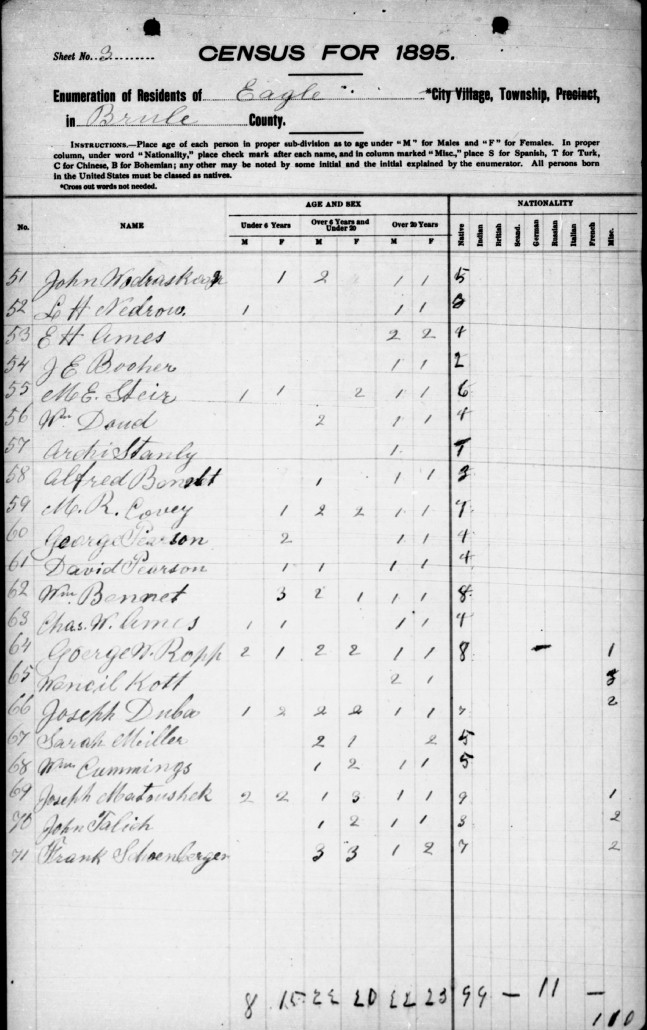 Sheet No. 3
CENSUS FOR 1895.
Enumeration of Residents of Eagle *City Village, Township, Precinct,
in Brule County.
INSTRUCTIONS.—Place age of each person in proper sub-division as to age under "M" for Males and "F" for Females. In proper
column, under word "Nationality," place check mark after each name, and in column marked "Misc.," place S for Spanish, T for Turk,
C for Chinese, B for Bohemian; any other may be noted by some initial and the initial explained by the enumerator. All persons born
in the United States must be classed as natives.
*Cross out words not needed.
AGE AND SEX NATIONALITY
No. NAME Under 6 Years Over 6 Years and Under 20 Over 20 Years Native Indian British Scand. German Russian Italian French Misc.
M F M F M F
51 John 1 2 1 1 5
52 L H Nedrow. 1 1 1 3
53 E H Ames 2 2 4
54 J E Booher 1 1 2
55 M. E. Steir 1 1 2 1 1 6
56 Wm Doud 2 1 1 4
57 Archi Stanly 1
58 Alfred Bennet 1 1 1 3
59 M. R. Covey 1 2 2 1 1 7
60 George Pearson 2 1 1 4
61 David Pearson 1 1 1 1 4
62 Wm Bennet 3 2 1 1 1 8
63 Chas. W. Ames 1 1 1 1 4
64 Goerge N. Ropp 2 1 2 2 1 1 8 – 1
65 Wencil Kott 2 1 3
66 Joseph Duba 1 2 2 2 1 1 7 2
67 Sarah Miller 2 1 2 5
68 Wm Cummings 1 2 1 1 5
69 Joseph Matoushek 2 2 1 3 1 1 9 1
70 John Talich 1 2 1 1 3 2
71 Frank Schoenberger 3 3 1 2 7 2
8 15 22 20 22 23 99 – 11 –
110